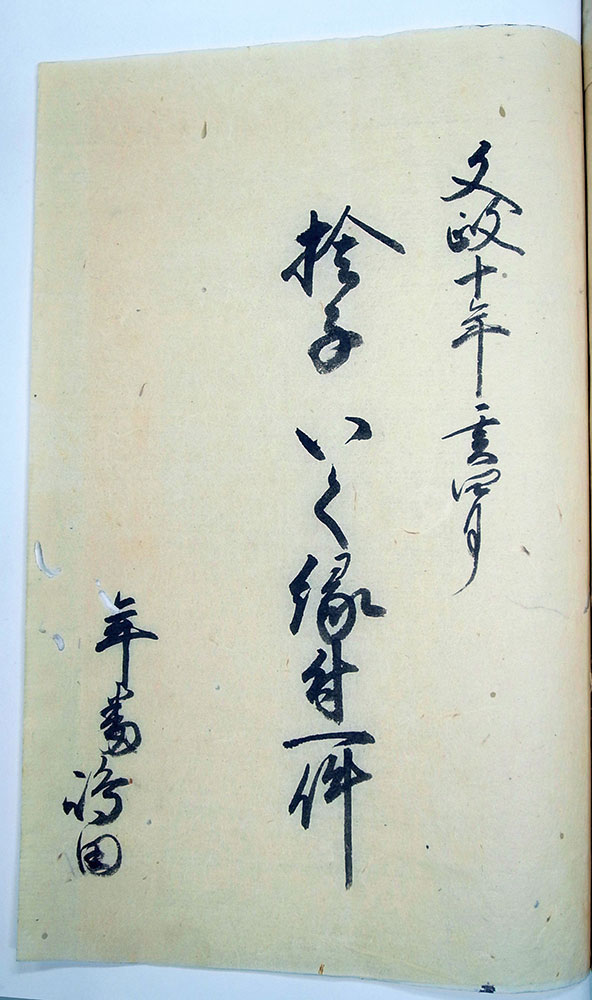 文政十年亥四月
捨子いく縁付一件
年番嶋田